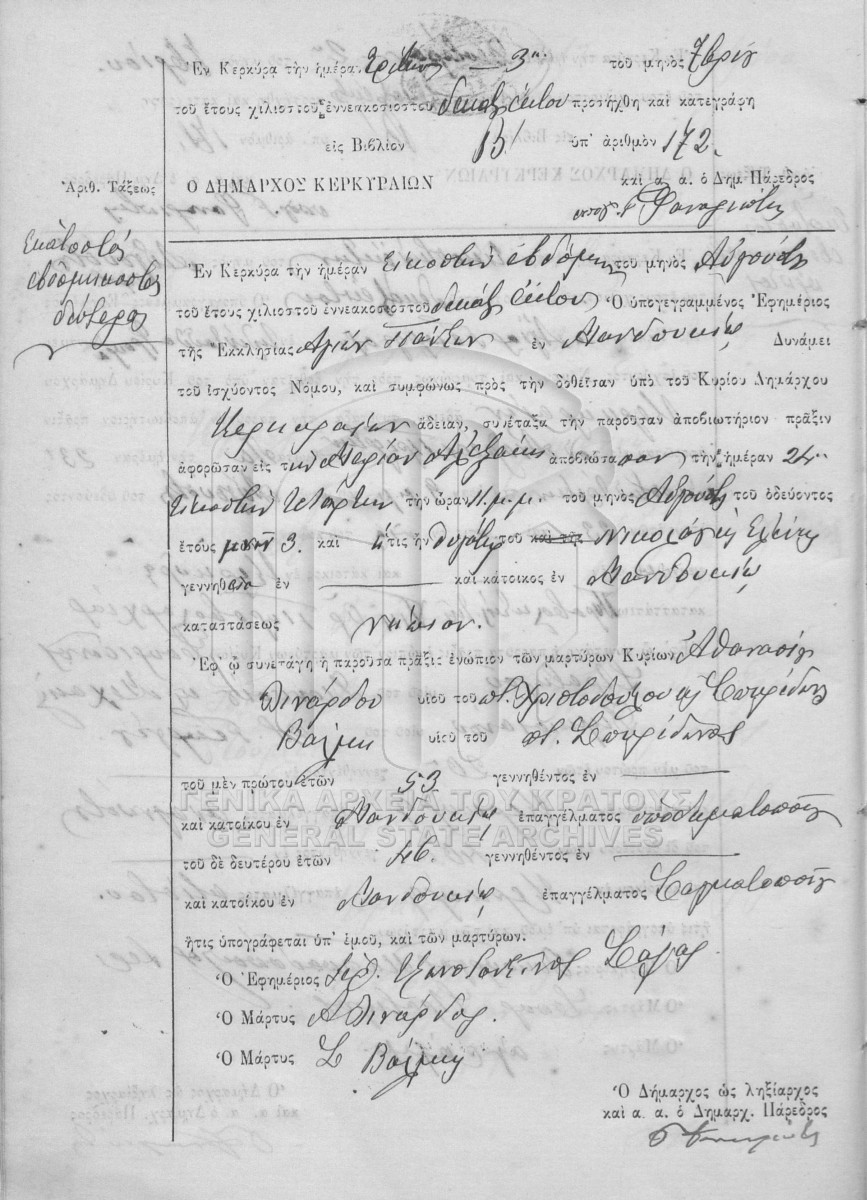 Ἐν Κερκύρᾳ τὴν ἡμέραν Τρίτην 3ην τοῦ μηνὸς 7βρίου
τοῦ ἔτους χιλιοστοῦ ἐννεακοσιοστοῦ δεκάτου ἕκτου προσήχθη καὶ κατεγράφη
εἰς Βιβλίον Β' ὑπ' ἀριθμὸν 172.
Ἀριθ. Τάξεως Ὁ ΔΗΜΑΡΧΟΣ ΚΕΡΚΥΡΑΙΩΝ καὶ α. α. ὁ Δημ. Πάρεδρος
Ἑκατοστὸς
ἑβδομηκοστὸς
δεύτερος
Ἐν Κερκύρᾳ τὴν ἡμέραν Εἰκοστὴν ἑβδόμην τοῦ μηνὸς Αὐγούστου
τοῦ ἔτους χιλιοστοῦ ἐννεακοσιοστοῦ δεκάτου ἕκτου Ὁ ὑπογεγραμμένος Ἐφημέριος
τῆς Ἐκκλησίας Ἁγίων Πάντων ἐν Μανδουκίῳ Δυνάμει
τοῦ ἰσχύοντος Νόμου, καὶ συμφώνως πρὸς τὴν δοθεῖσαν ὑπὸ τοῦ Κυρίου Δημάρχου
Κερκυραίων ἄδειαν, συνέταξα τὴν παροῦσαν ἀποβιωτήριον πρᾶξιν
ἀφορῶσαν εἰς τὴν Μαρίαν ἀποβιώσασαν τὴν ἡμέραν 24
Εἰκοστὴν τετάρτην τὴν ὥραν 11 μ.μ. τοῦ μηνὸς Αὐγούστου τοῦ ὁδεύοντος
ἔτους 3. καὶ ἥτις ἦν θυγάτηρ τοῦ καὶ τῆς Νικολάου καὶ Ἑλένης
γεννηθεῖσα ἐν — καὶ κάτοικος ἐν Μανδουκίῳ
καταστάσεως νήπιον.
Ἐφ' ᾧ συνετάγη ἡ παροῦσα πρᾶξις ἐνώπιον τῶν μαρτύρων Κυρίων Ἀθανασίου
Λινάρδου υἱοῦ τοῦ π. Χριστοδούλου καὶ Σπυρίδωνος
Βάλμη υἱοῦ τοῦ π. Σπυρίδωνος
τοῦ μὲν πρώτου ἐτῶν 53 γεννηθέντος ἐν —
καὶ κατοίκου ἐν Μανδουκίῳ ἐπαγγέλματος ὑποδηματοποιοῦ
τοῦ δὲ δευτέρου ἐτῶν 46. γεννηθέντος ἐν —
καὶ κατοίκου ἐν Μανδουκίῳ ἐπαγγέλματος Σαγματοποιοῦ
ἥτις ὑπογράφεται ὑπ' ἐμοῦ, καὶ τῶν μαρτύρων.
Ὁ Ἐφημέριος Κωνσταντῖνος
Ὁ Μάρτυς Α Λινάρδος.
Ὁ Μάρτυς Σ Βάλμης
Ὁ Δήμαρχος ὡς ληξίαρχος
καὶ α. α. ὁ Δημαρχ. Πάρεδρος
ΓΕΝΙΚΑ ΑΡΧΕΙΑ ΤΟΥ ΚΡΑΤΟΥΣ
GENERAL STATE ARCHIVES